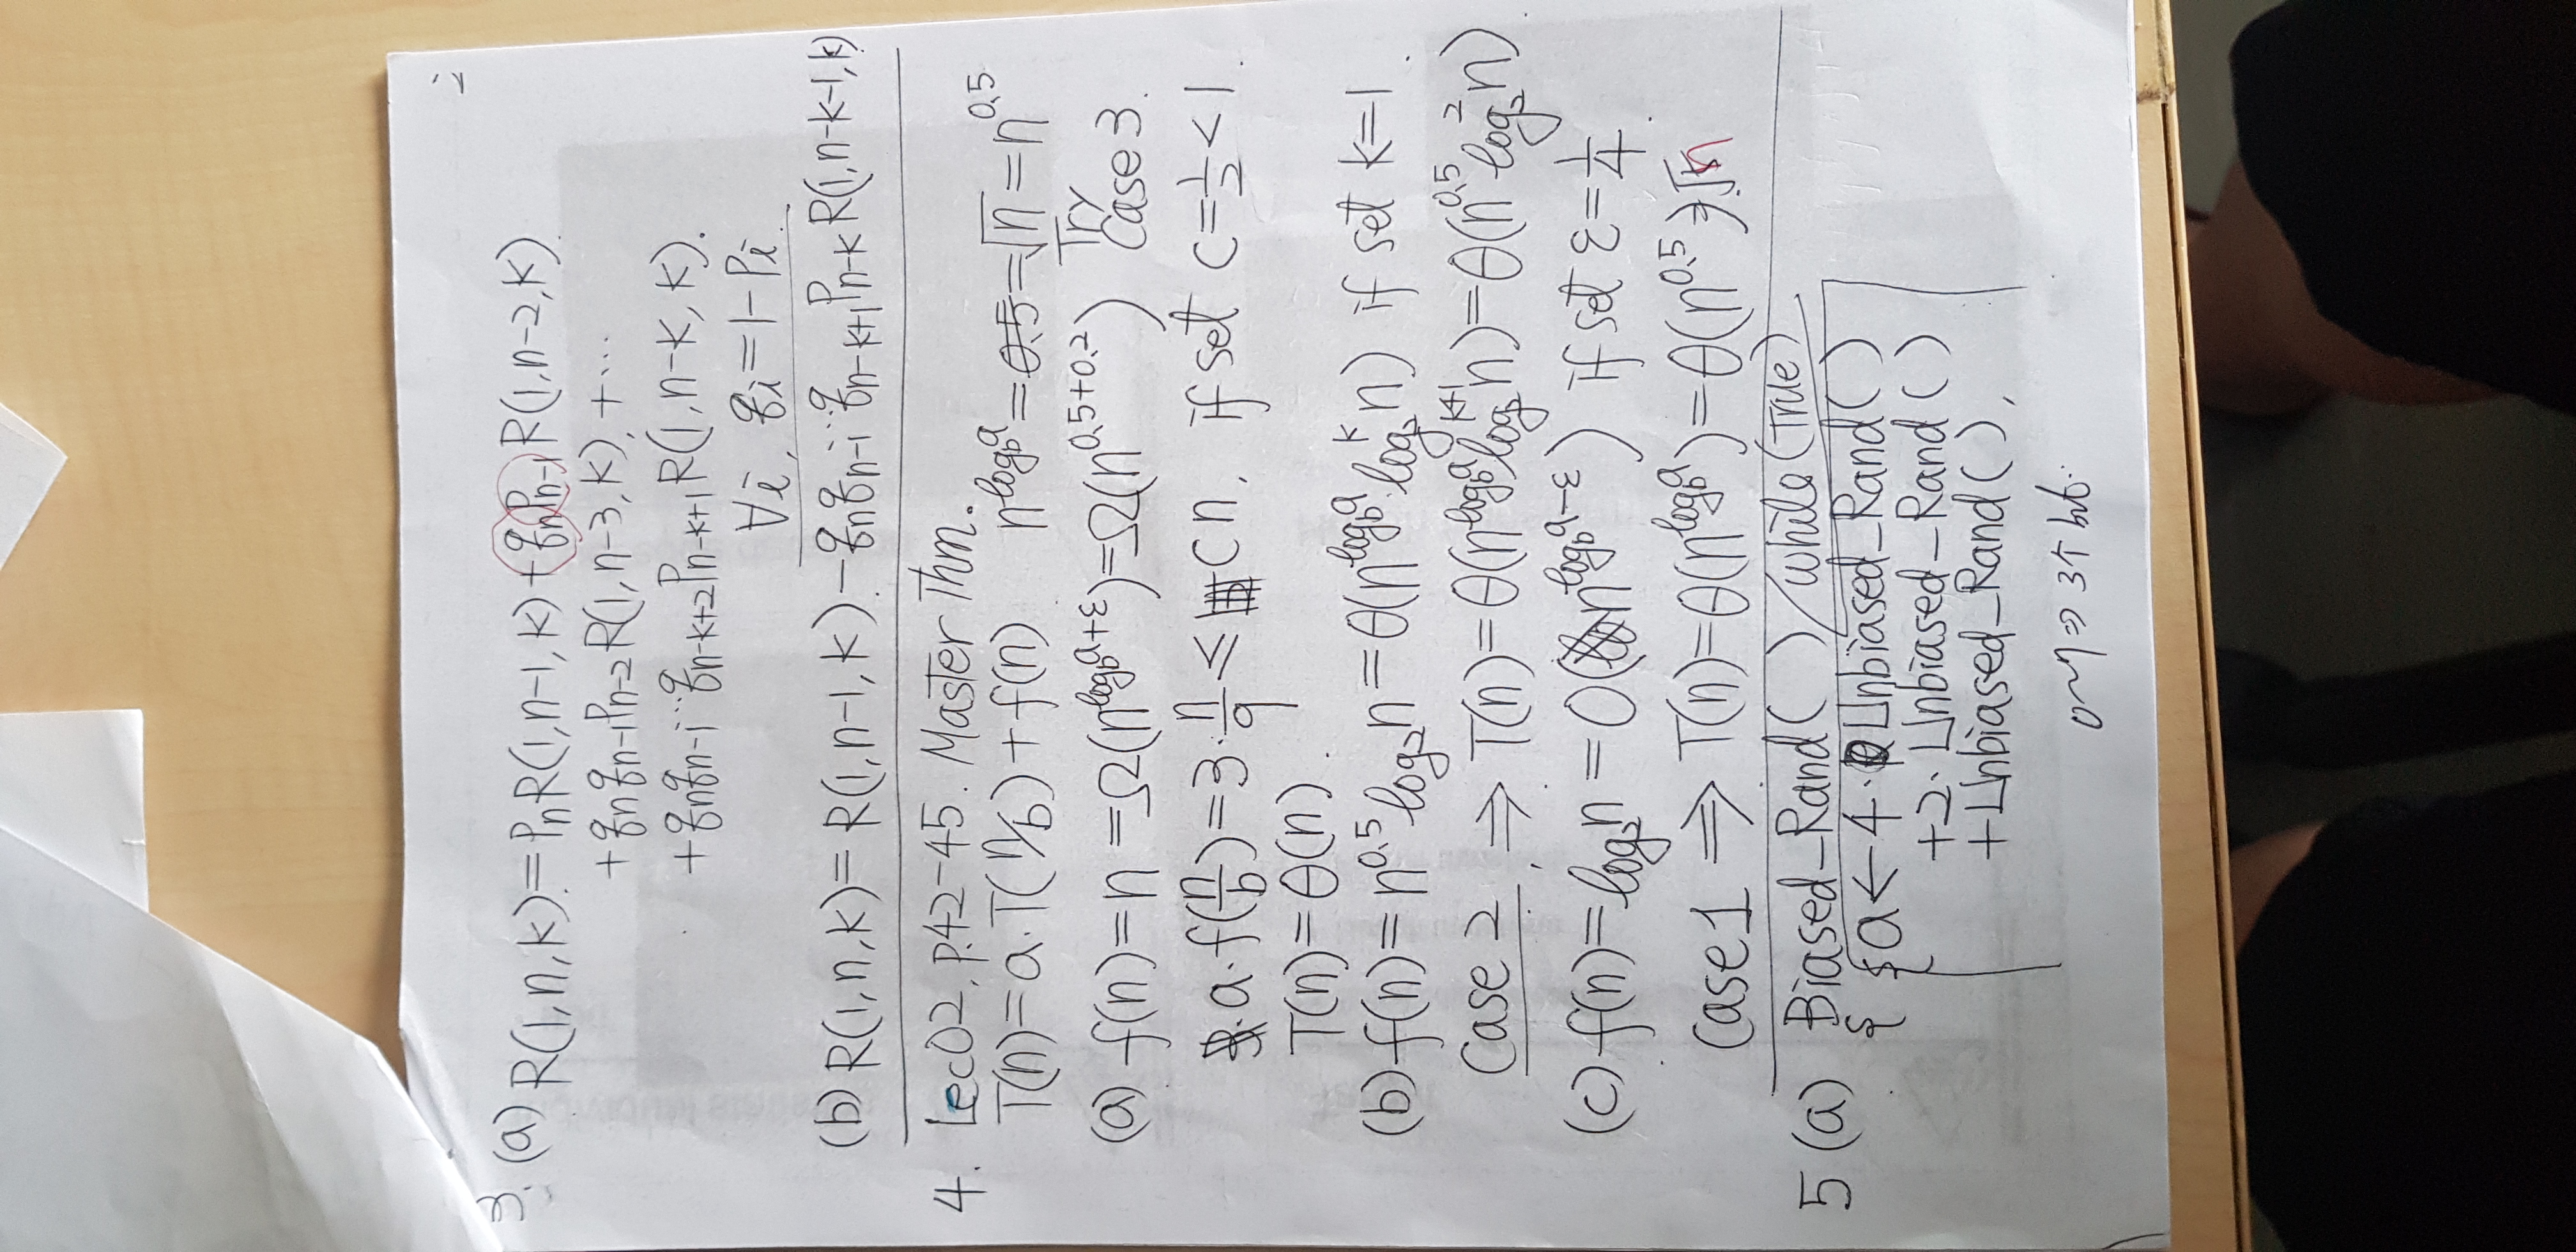 2
3. (a) R(1,n,k)=PnR(1,n-1,k)+qnPn-1R(1,n-2,k)
+qnqn-1Pn-2R(1,n-3,k)+⋯
+qnqn-1⋯qn-k+2Pn-k+1R(1,n-k,k).
∀i, qi=1-Pi.
(b) R(1,n,k)=R(1,n-1,k)-qnqn-1⋯qn-k+1Pn-kR(1,n-k-1,k)
4. Lec02, p.42-45. Master Thm.
T(n)=a·T(n/b)+f(n) n^log_b a=0.5=√n=n^0.5
(a) f(n)=n=Ω(n^log_b a+ε)=Ω(n^0.5+0.2) Try Case 3.
a·f(n/b)=3·n/9≤cn, if set c=1/2<1.
T(n)=θ(n).
(b) f(n)=n^0.5 log₂n=θ(n^log_b a·log₂^k n) if set k=1.
Case 2, ⇒ T(n)=θ(n^log_b a log₂^k+1 n)=θ(n^0.5 log₂² n).
(c) f(n)=log₂n=O(n^log_b a-ε) if set ε=1/4.
Case 1 ⇒ T(n)=θ(n^log_b a)=θ(n^0.5) √n
5 (a) Biased_Rand( ) / while(True)
{ { a←4·Unbiased_Rand( )
+2·Unbiased_Rand( )
+Unbiased_Rand( ),
0~7⇒3个bit.